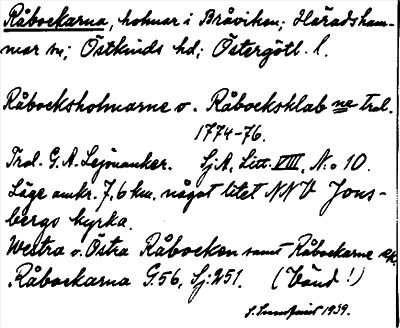 Råbockarna, holmar i Bråviken; Häradsham-
mar sn; Östkinds hd; Östergötl. l.
Råbocksholmarne o. Råbocksklab ne Trol.
1774-76.
Trol. G. A. Lejonanker. Sj A, Litt. VIII, N:o 10.
Läge omkr. 7,6 km, något litet NNV Jons-
bergs kyrka.
Westra o. Östra Råbocken samt Råbockarne
Råbockarna G. 56, Sj: 251. (Vänd!)
1939.